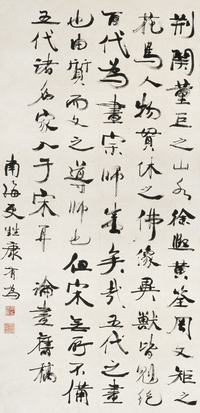 荆關董巨之山水徐熙黃筌周文矩之
花鳥人物貫休之佛象異獸皆魁絕
百代為畫宗師盛矣哉五代之畫
也由質而文之導師也但宋無所不備
五代諸名家入于宋耳 論畫舊稿
南海更甡康有為